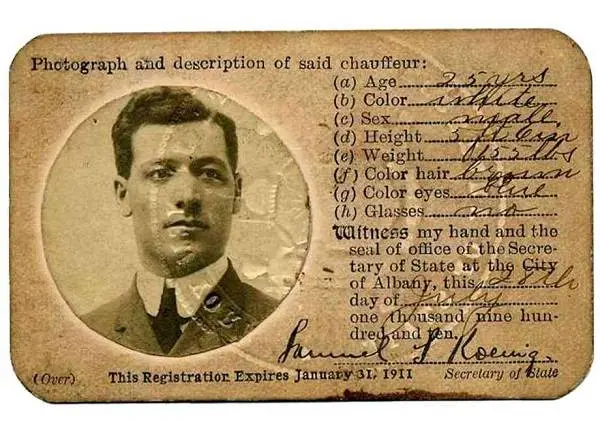 Photograph and description of said chauffeur:
(a) Age 25 yrs
(b) Color white
(c) Sex male
(d) Height 5 ft 6 in
(e) Weight 155 lbs
(f) Color hair brown
(g) Color eyes blue
(h) Glasses no
Witness my hand and the
seal of office of the Secre-
tary of State at the City
of Albany, this 20th
day of July
one thousand nine hun-
dred and ten.
Samuel S Koenig
(Over) This Registration Expires January 31, 1911 Secretary of State